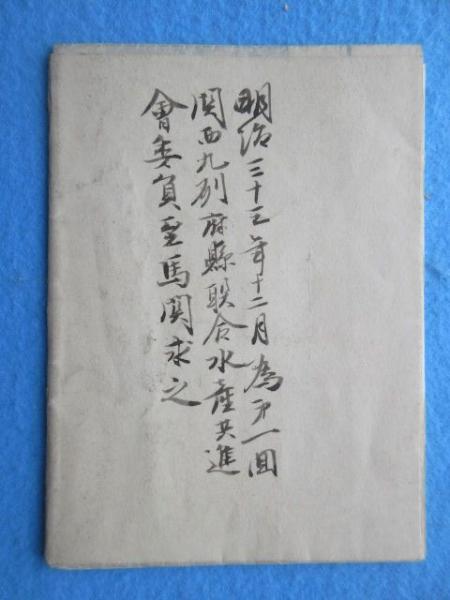 明治三十三年十二月為第一回
関西九州府縣联合水産共進
會委員至馬関求之